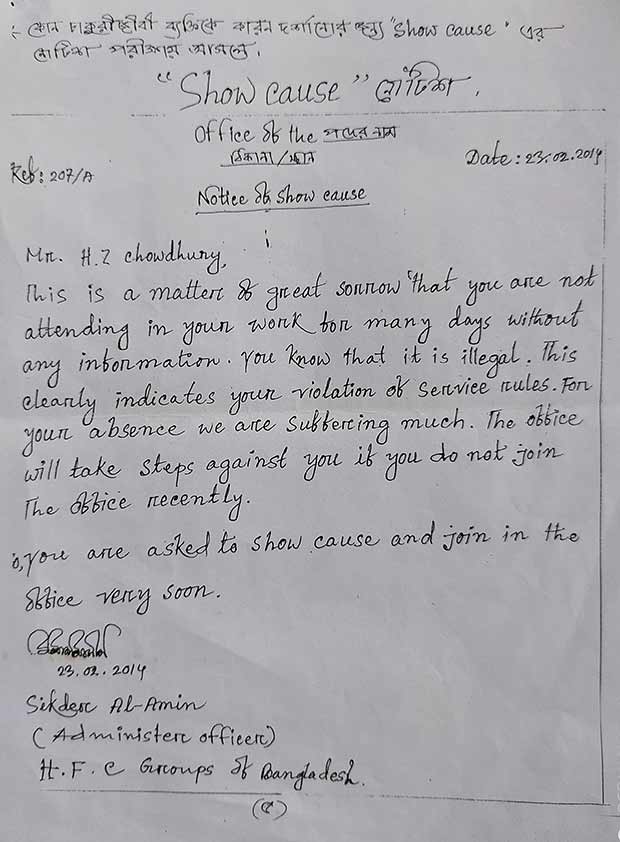 :- কোন চাকুরীজীবী ব্যক্তিকে কারন দর্শানোর জন্য "Show cause" এর
নোটিশ পরীক্ষায় আসলে।
"Show cause" নোটিশ.
Office of the পদের নাম
ঠিকানা/স্থান
Ref: 207/A
Date: 23.02.2014
Notice of show cause
Mr. H.Z chowdhury,
This is a matter of great sorrow that you are not
attending in your work for many days without
any information. You know that it is illegal. This
clearly indicates your violation of service rules. For
your absence we are suffering much. The office
will take steps against you if you do not join
The office recently.
So, you are asked to show cause and join in the
office very soon.
23.02.2014
Sikder Al-Amin
(Administer officer)
H.F.C Groups of Bangladesh.
(৫)